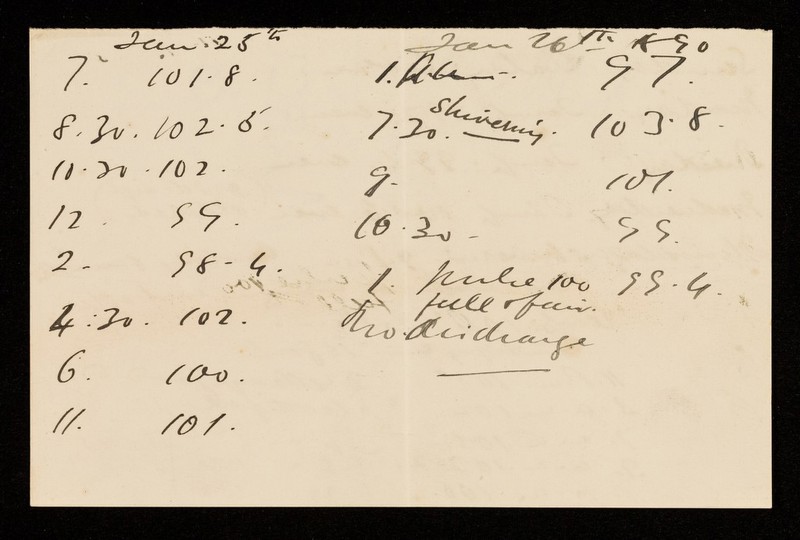 Jan. 25th
7. 101.8.
8.30. 102.5.
10.30. 102.
12. 99.
2. 98.4.
4.30. 102.
6. 100.
11. 101.
Jan 26th 1890
1. 97.
7.30. shivering. 103.8.
9. 101.
10.30. 99.
1. pulse 100 99.4.
full & fair.
no discharge